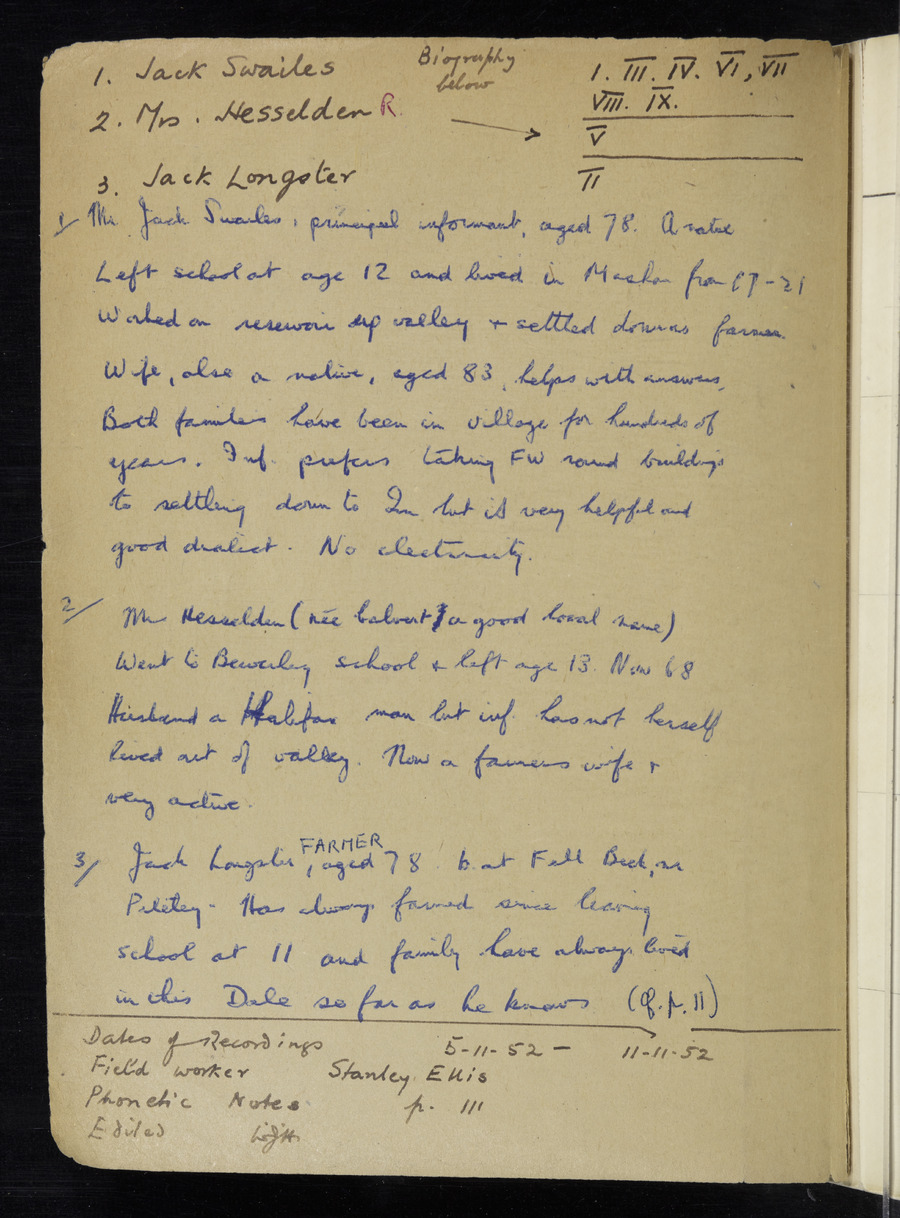 1. Jack Swailes
Biography below
1. III. IV. VI, VII
VIII. IX.
2. Mrs. Hesselden R.
V
3. Jack Longster
II
1/ Mr Jack Swailes, principal informant, aged 78. A native
Left school at age 12 and lived in Masham from 17-21
Worked on resevoir up valley + settled down as farmer.
Wife, also a native, aged 83, helps with answers,
Both families have been in village for hundreds of
years. Inf. prefers taking FW round buildings
to settling down to Qn but is very helpful and
good dialect. No electricity.
2/ Mrs Hesselden (née Calvert, a good local name)
Went to Bewerley school & left age 13. Now 68
Husband a Halifax man but inf. has not herself
lived out of valley. Now a farmers wife +
very active.
3/ Jack Longster FARMER, aged 78 b. at Fell Beck, nr
Pateley. Has always farmed since leaving
school at 11 and family have always lived
in this Dale so far as he knows (Cf. p. 11)
Dates of Recordings 5-11-52 – 11-11-52
Field worker Stanley Ellis
Phonetic Notes p. 111
Edited